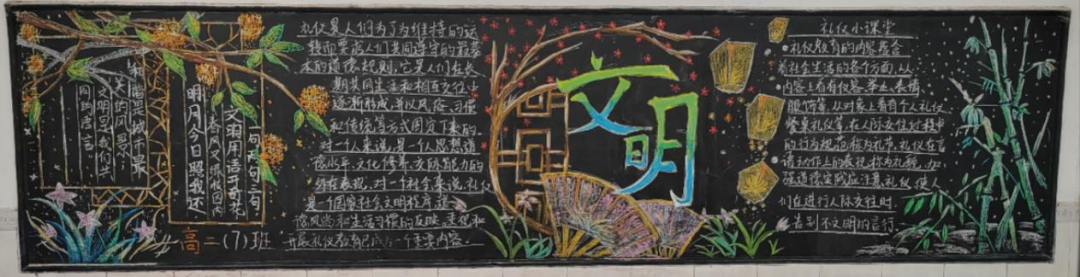 和谐是城市最
美的风景
文明是我们共
同的语言
文明用语要花
一句为句三句
春风又绿江南岸
明月今日照我还
高二(7)班
礼仪是人们为了为维持的运
转而要求人们共同遵守的最基
本的道德规则，它是人们在长
期共同生活和相互交往中
逐渐形成，并以风俗、习惯
和传统等方式固定下来的。
对一个人来说，是一个人思想道
德水平、文化修养、交际能力的
外在表现，对一个社会来说，礼仪
是一个国家社会文明程度、道
德风尚和生活习惯的反映，重视和
开展礼仪教育已成为一个重要内容。
文明
礼仪小课堂
礼仪教育的内容涵盖
着社会生活的各个方面，从
内容上看有仪容、举止、表情、
服饰等，从对象上看有个人礼仪
餐桌礼仪等，在人际交往过程中
的行为规范称为礼节，礼仪在言
语动作上的表现称为礼貌，加
强道德实践应注意礼仪，使人
们在进行人际交往时，
告别不文明的言行。